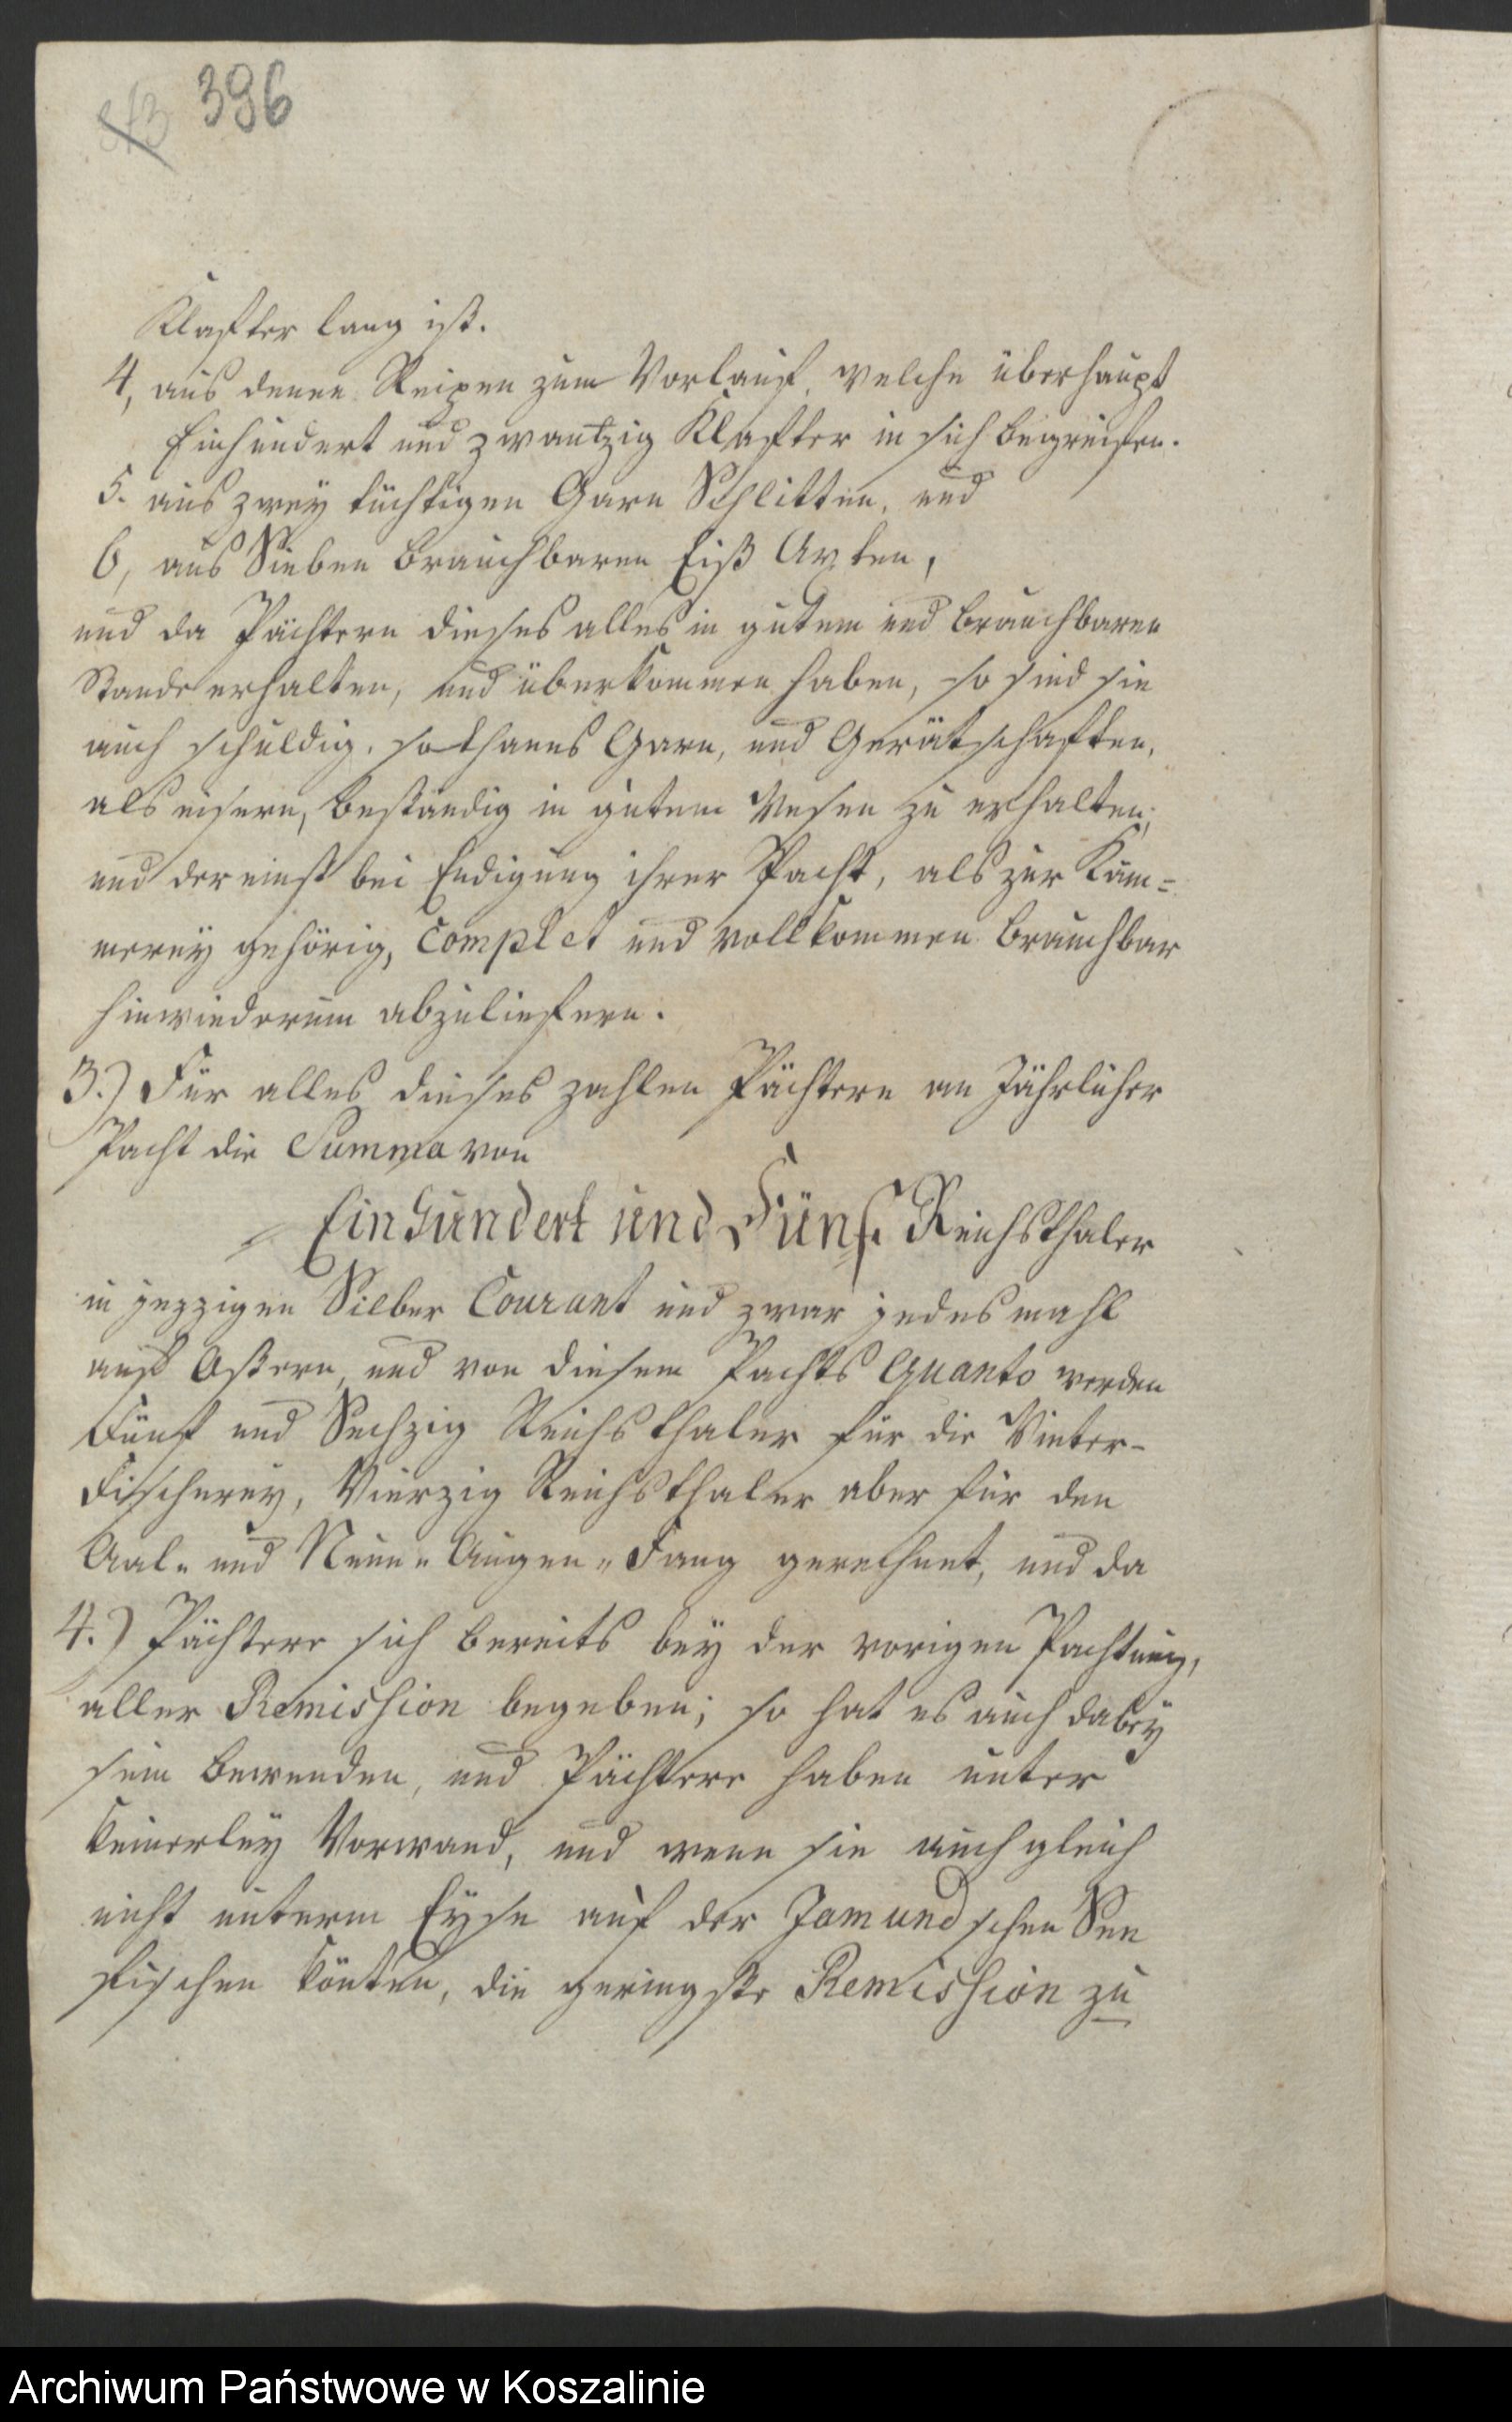 396
Klafter lang ist.
4, aus denen Reipen zum Vorlauf, welche überhaupt
Einhundert und zwantzig Klafter in sich begreifen.
5. aus zwey tüchtigen Garn Schlitten, und
6, aus Sieben brauchbaren Eiß Axten,
und da Pächtern dieses alles in gutem und brauchbaren
Stande erhalten, und überkommen haben, so sind sie
auch schuldig, sothanes Garn, und Gerätschaften,
als eisern, beständig in gutem Wesen zu erhalten,
und dereinst bei Endigung ihrer Pacht, als zur Käm=
merey gehörig, complet und vollkommen brauchbar
hinwiederum abzuliefern.
3.) Für alles dieses zahlen Pächtere an Jährlicher
Pacht die Summa von
Einhundert und Fünf Reichsthaler
in jezzigen Silber Courant und zwar jedesmahl
auf Ostern, und von diesem Pachts Quanto werden
Fünf und Sechzig Reichsthaler für die Winter-
Fischerey, Vierzig Reichsthaler aber für den
Aal- und Neun-Augen-Fang gerechnet, und da
4.) Pächtere sich bereits bey der vorigen Pachtung,
aller Remission begeben; so hat es auch dabey
sein bewenden, und Pächtere haben unter
keinerley Vorwand, und wenn sie auch gleich
nicht unterm Eyse auf der Jamundschen See
fischen könten, die geringste Remission zu
Archiwum Państwowe w Koszalinie